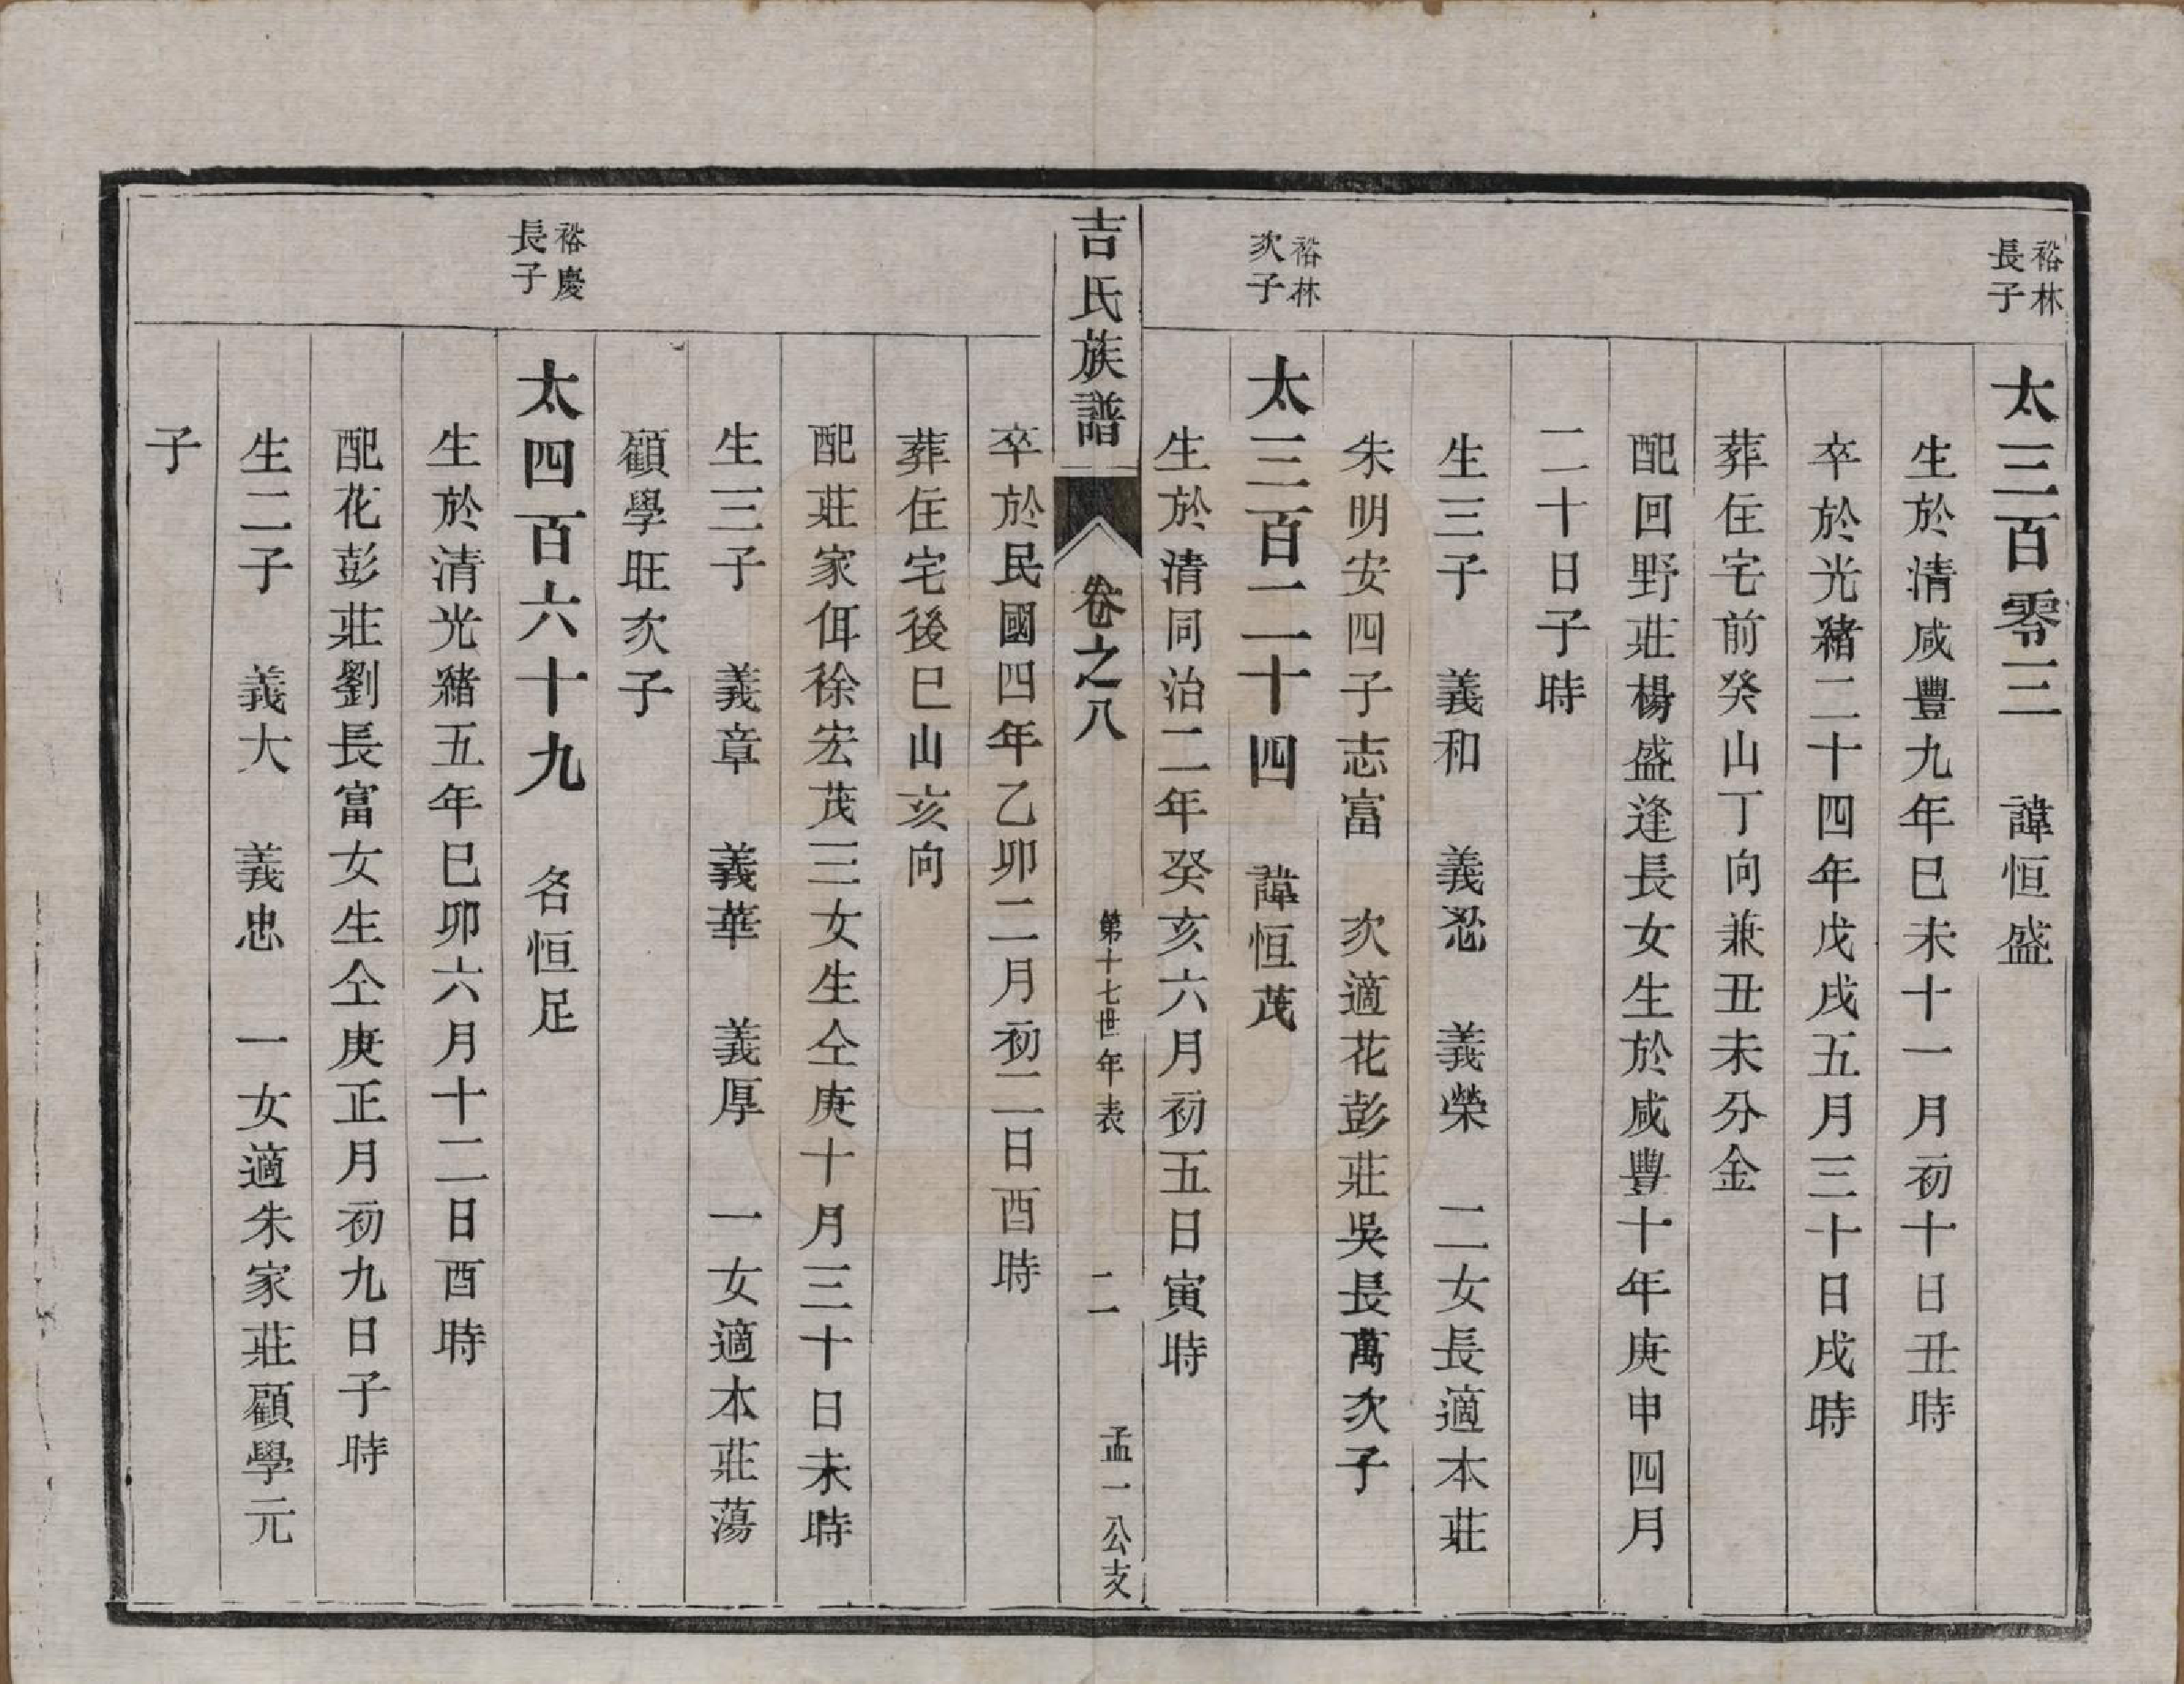 裕林
長子
太三百零三　諱恒盛
生於清咸豐九年巳未十一月初十日丑時
卒於光緒二十四年戊戌五月三十日戌時
葬住宅前癸山丁向兼丑未分金
配回野莊楊盛逢長女生於咸豐十年庚申四月
二十日子時
生三子　義和　義忍　義榮　二女長適本莊
朱明安四子志富　次適花彭莊吳長萬次子
裕林
次子
太三百二十四　諱恒茂
生於清同治二年癸亥六月初五日寅時
吉氏族譜　卷之八　第十七世年表　二　孟一公支
卒於民國四年乙卯二月初二日酉時
葬住宅後巳山亥向
配莊家佴徐宏茂三女生仝庚十月三十日未時
生三子　義章　義華　義厚　一女適本莊蕩
顧學旺次子
裕慶
長子
太四百六十九　名恒足
生於清光緒五年巳卯六月十二日酉時
配花彭莊劉長富女生仝庚正月初九日子時
生二子　義大　義忠　一女適朱家莊顧學元
子